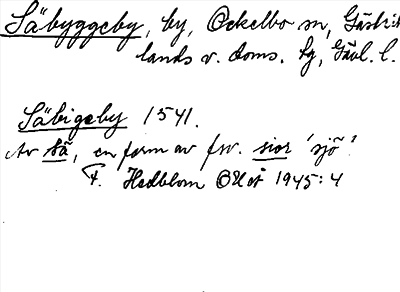 Säbyggeby, by, Ockelbo sn, Gästrik
lands v. doms. hg, Gävl. l.
Säbigeby 1541.
Av sä, en form av fsv. sior 'sjö'.
F. Hedblom OUÅ 1945:4